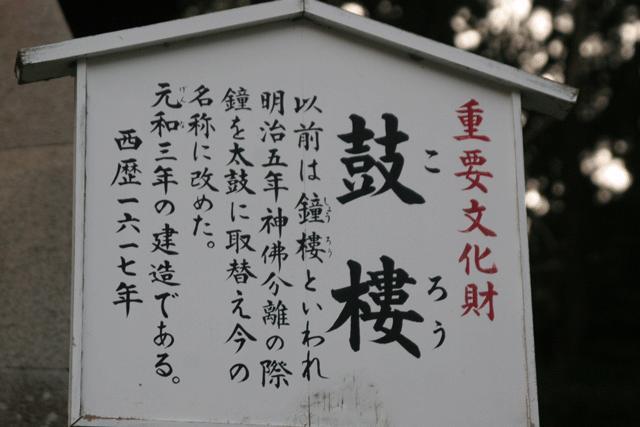 重要文化財
鼓樓
ころう
以前は鐘樓といわれ
しょうろう
明治五年神佛分離の際
鐘を太鼓に取替え今の
名称に改めた。
元和三年の建造である。
げんな
西歴一六一七年